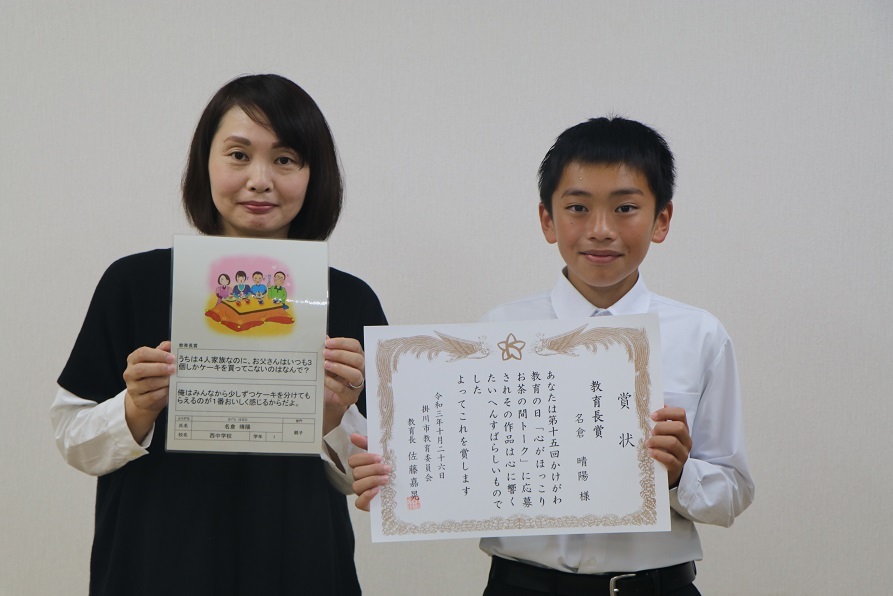 教育長賞
うちは4人家族なのに、お父さんはいつも3
個しかケーキを買ってこないのはなんで?
俺はみんなから少しずつケーキを分けても
らえるのが1番おいしく感じるからだよ。
名倉 晴陽
校名
西中学校
学年
1
親子
賞状
教育長賞
名倉 晴陽 様
あなたは第十五回かけがわ
教育の日「心がほっこり
お茶の間トーク」に応募
されその作品は心に響く
たいへんすばらしいもので
した
よってこれを賞します
令和三年十月二十六日
掛川市教育委員会
教育長 佐藤嘉晃